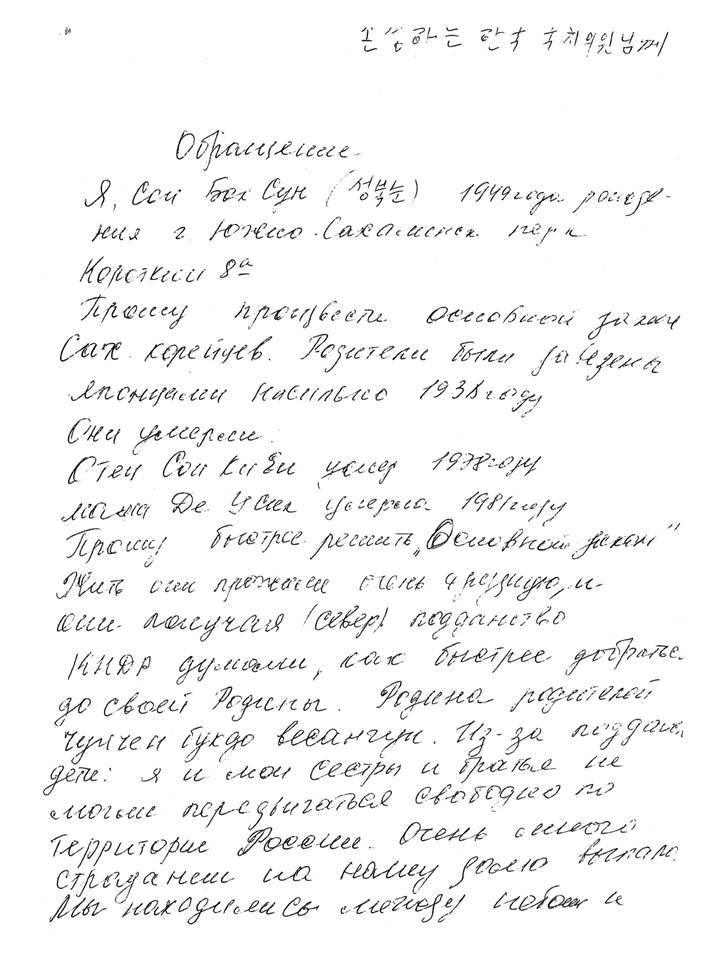 존경하는 한국 국회의원님께
Обращение
Я, Сон Бок Сун (성북순) 1949 года рожде-
ния г. Южно-Сахалинск пер.
Короткий 8а
Прошу произвести основной закон
Сах. корейцев. Родители были завезены
Японцами насильно 1938 году
Они умерли.
Отец Сон Ки Ен умер 1978 году
мама Де умерла 1981 году
Прошу быстрее решить „Основной закон"
Жить они прожили очень
они получая (север) подданство
КНДР думали, как быстрее добраться
до своей Родины. Родина родителей
Чунчен букдо
дети: я и мои сестры и братья не
могли передвигаться свободно по
территории России. Очень много
страданий на нашу долю выпало.
Мы находились между небом и